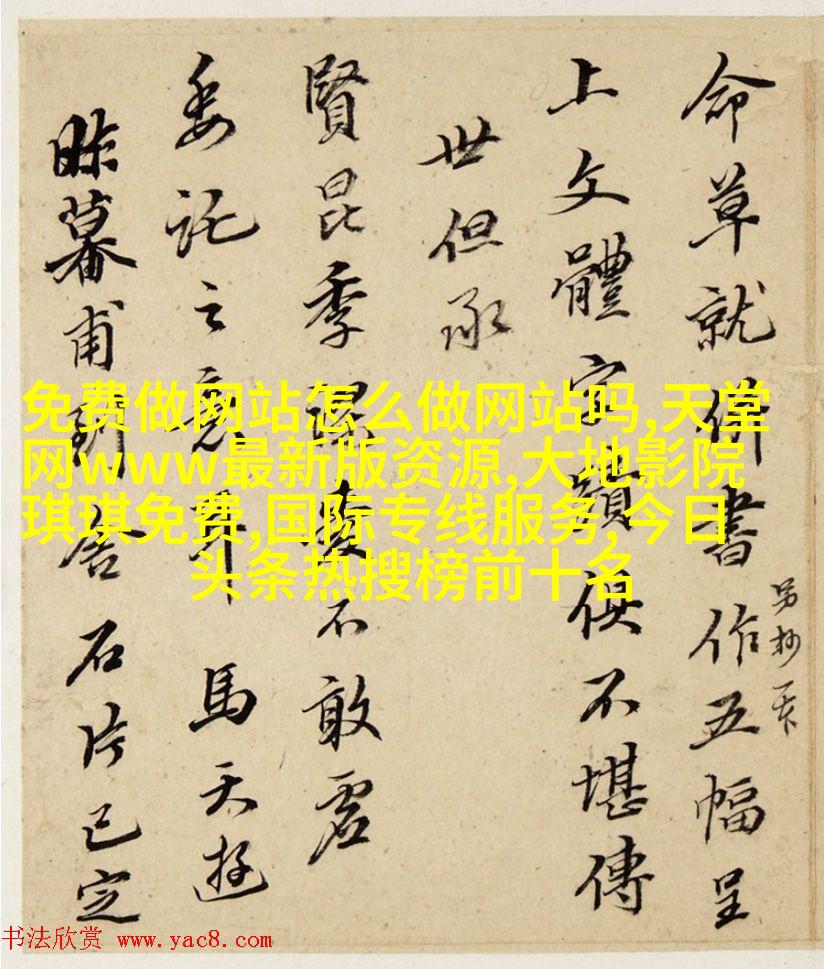 命草就併書作五幅呈
另抄一
上文體俱不堪傳
世但承
賢昆季不敢虛
委託之意耳馬天游
昨暮甫到舍石片已定
免费做网站怎么做网站吗,天堂
网www最新版资源,大地影院
琪琪免费,国际专线服务,今日
头条热搜榜前十名
书法欣赏 www.yac8.com